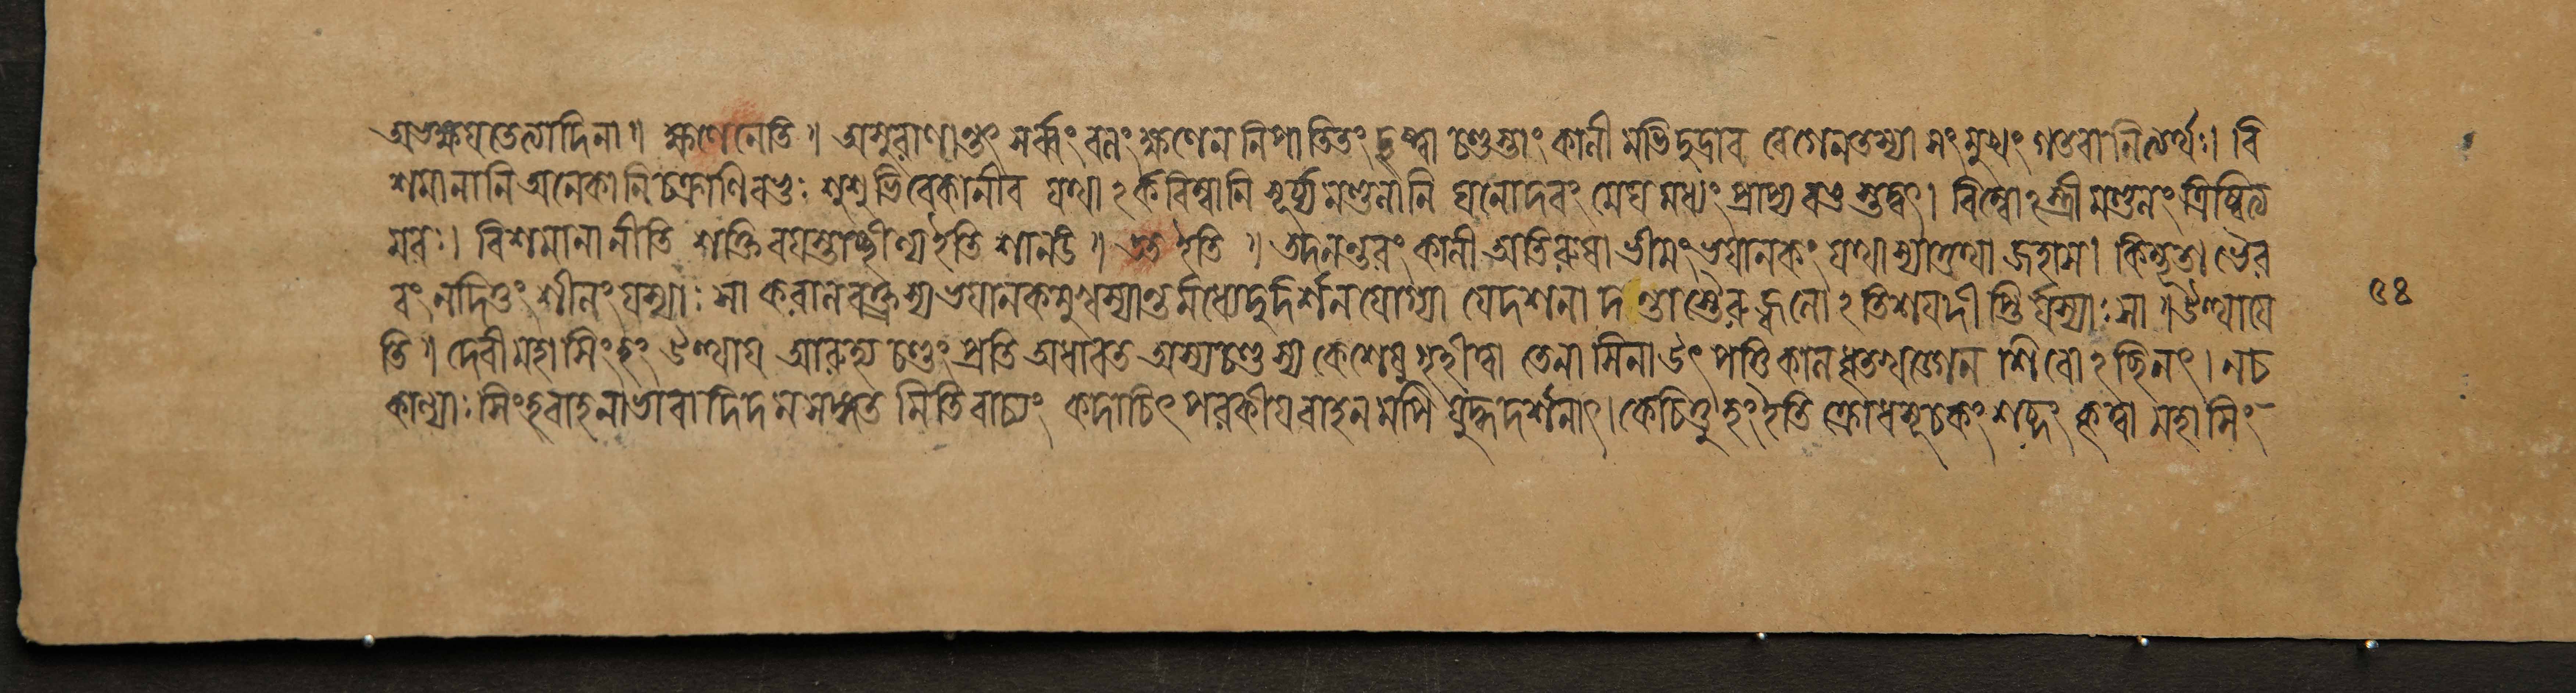 অভক্ষয়তেত্যাদিনা॥ ক্ষণেনেতি॥ অসুরাণান্তৎ সর্ব্বং বলং ক্ষণেন নিপাতিতং দৃষ্ট্বা চণ্ডস্তাং কালীমভিদুদ্রাব বেগেন তস্যা সংমুখং গতবানিত্যর্থঃ। বি
শমানানি অনেকানি চক্রাণি বভুঃ শুশুভিরে কানীব যথাঽর্কবিম্বানি সূর্য্যমণ্ডলানি ঘনোদরং মেঘমধ্যং প্রাপ্য বভুস্তদ্বৎ। বিম্বোঽস্ত্রী মণ্ডলং ত্রিষ্বিত্য
মরঃ। বিশমানানীতি শক্তিবয়স্তাচ্ছীল্য ইতি শানচ্॥ তত ইতি॥ তদনন্তরং কালী অতিরুষা ভীমং ভয়ানকং যথা স্যাত্তথা জহাস। কিম্ভূতা ভৈর
বং নদিতুং শীলং যস্যাঃ সা করালবক্ত্রস্য ভয়ানকমুখস্যান্তর্মধ্যে দুর্দর্শনযোগ্যা যে দশনা দন্তাস্তৈরুজ্জ্বলোঽতিশয়দীপ্তির্যস্যাঃ সা॥ উত্থায়ে
তি॥ দেবী মহাসিংহং উত্থায় আরুহ্য চণ্ডং প্রতি অধাবত অস্য চণ্ডস্য কেশেষু গৃহীত্বা তেনাসিনা উৎপত্তিকালধৃতখড্গেন শিরোঽচ্ছিনৎ। নচ
কাল্যাঃ সিংহবাহনাভাবাদিদমসঙ্গতমিতি বাচ্যং কদাচিৎ পরকীয়বাহনমপি যুদ্ধদর্শনাৎ। কেচিত্তু হং ইতি ক্রোধসূচকং শব্দং কৃত্বা মহাসিং
৫৪